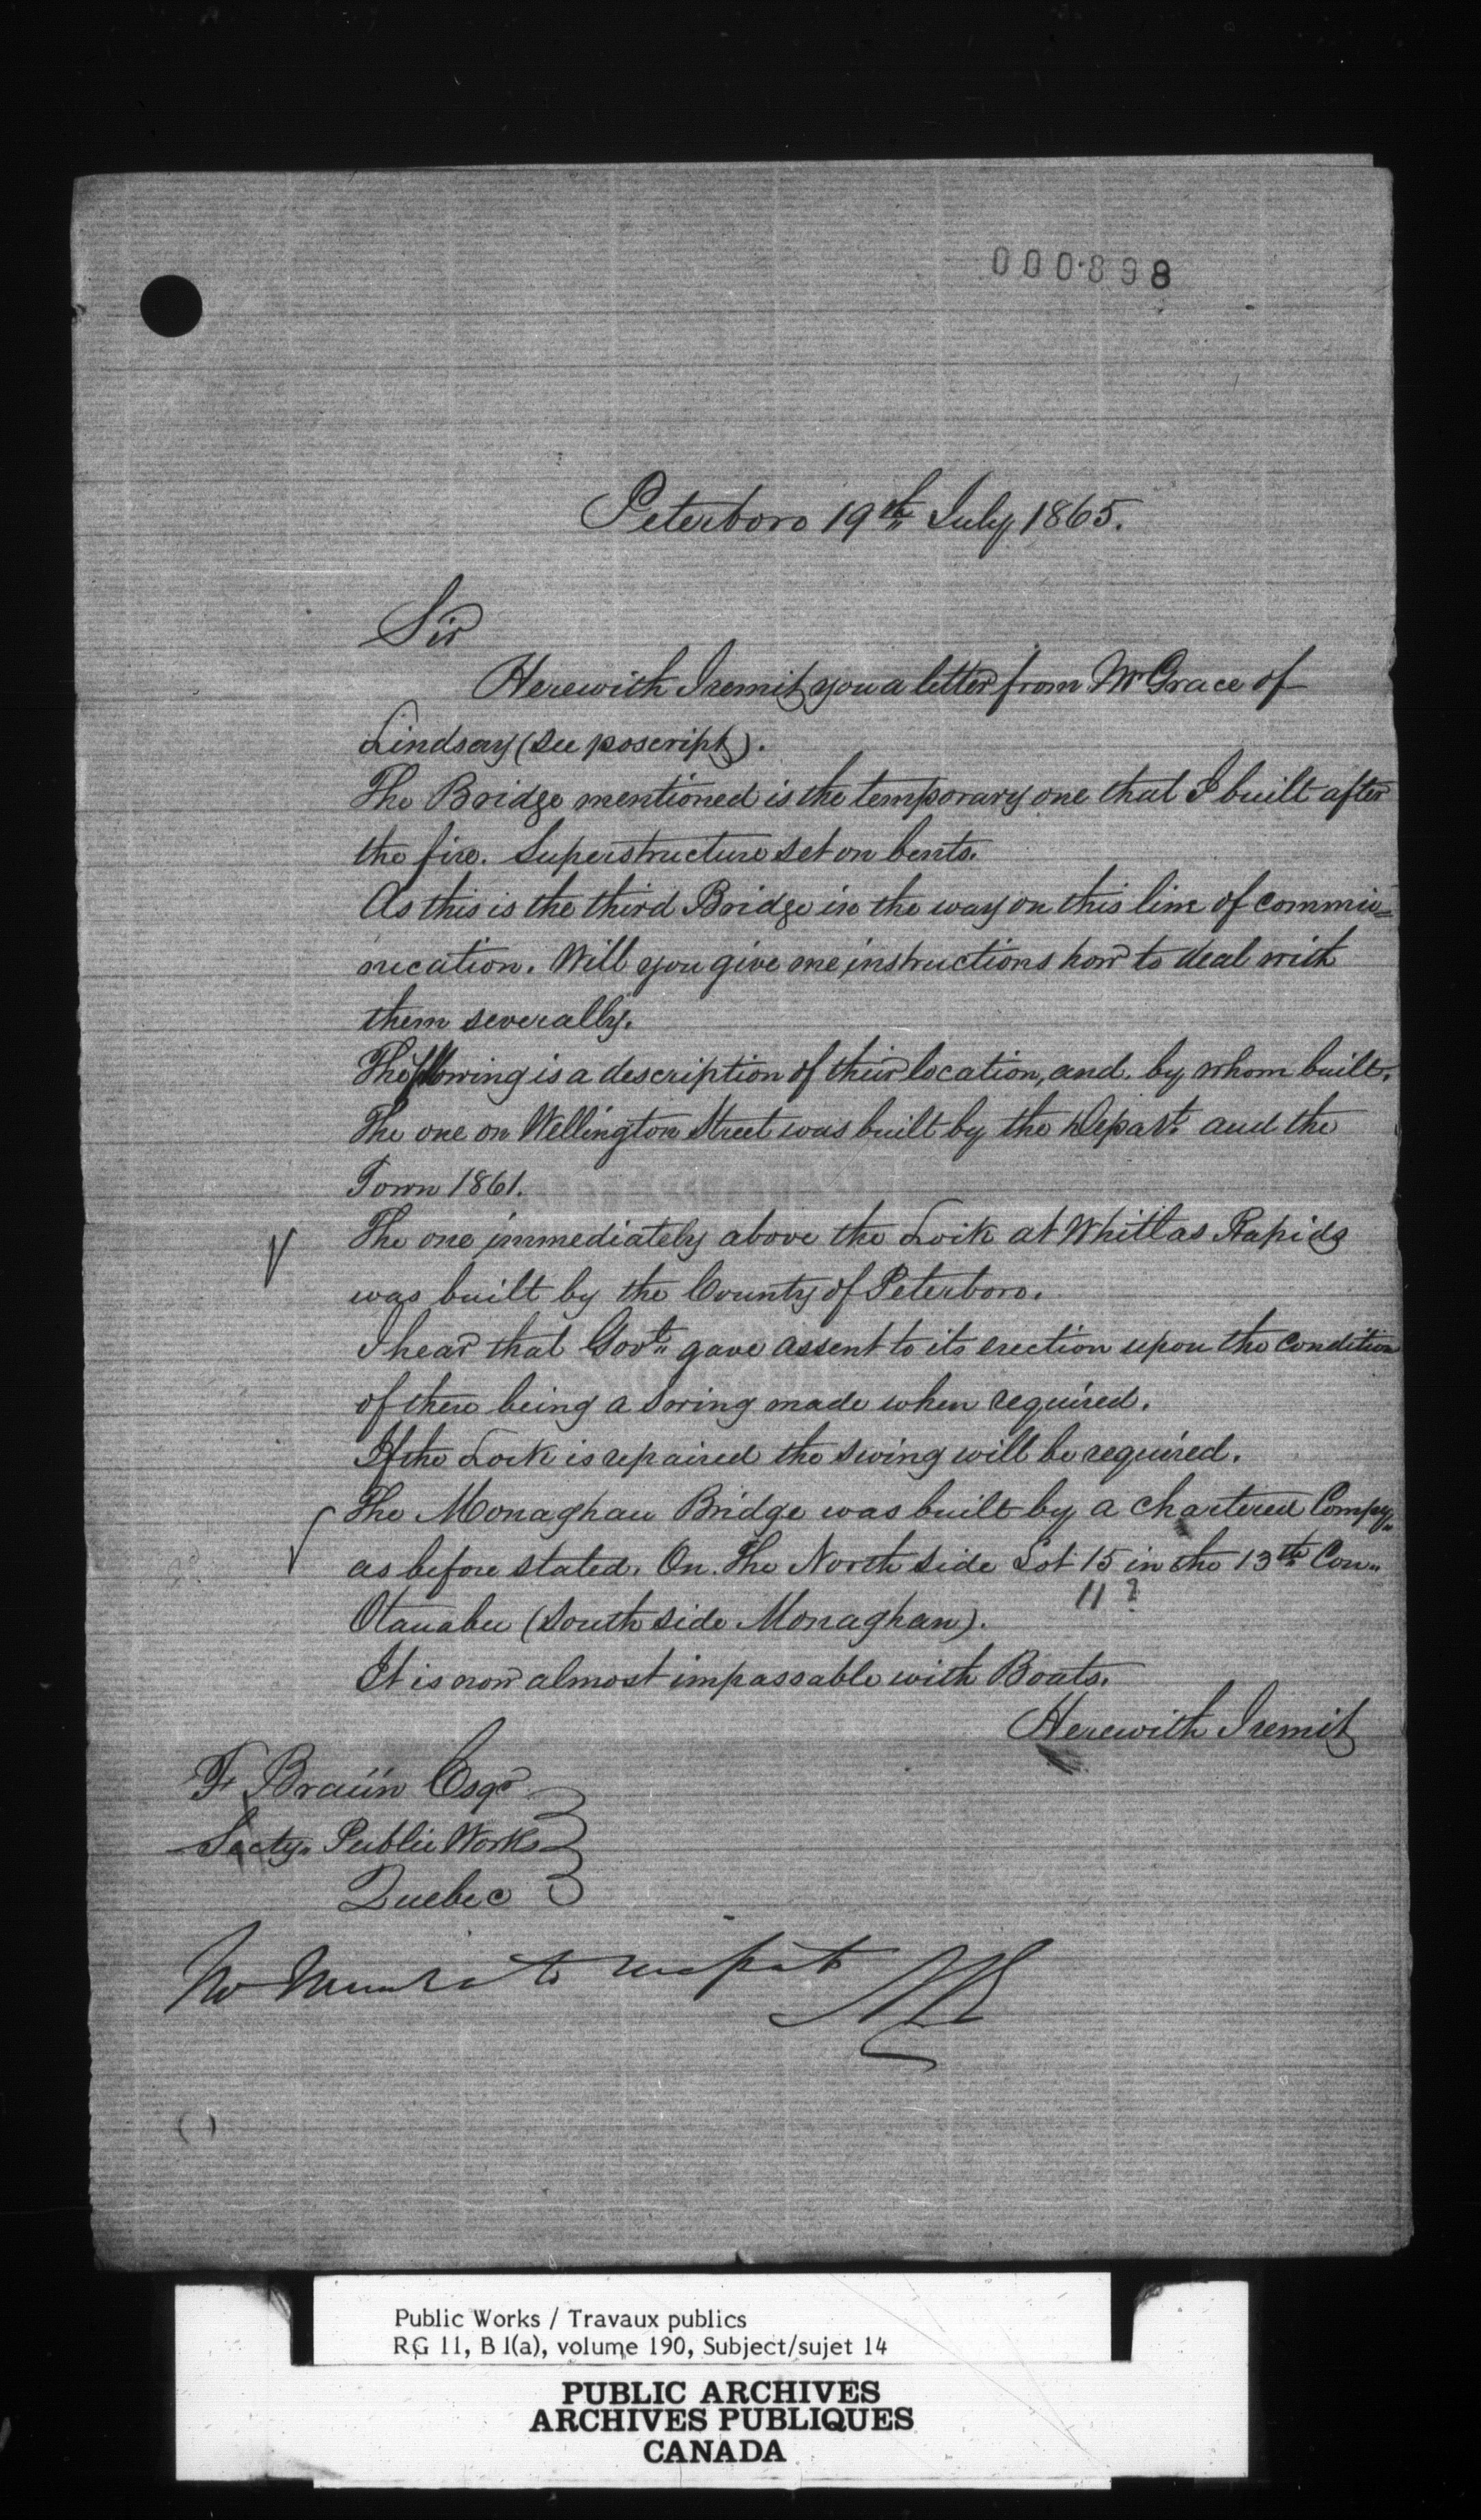 000898
Peterboro 19th July 1865.
Sir
Herewith I remit you a letter from Mr Grace of
Lindsay (see poscript).
The Bridge mentioned is the temporary one that I built after
the fire. Superstructure set on bents.
As this is the third Bridge in the way on this line of commu=
nication. Will you give me instructions how to deal with
them severally.
The following is a description of their location, and by whom built.
The one on Wellington Street was built by the Depart. and the
Town 1861.
The one immediately above the Lock at Whitlas Rapids
was built by the County of Peterboro.
I hear that Govt. gave assent to its erection upon the condition
of there being a swing made when required.
If the Lock is repaired the swing will be required.
The Monaghan Bridge was built by a Chartered Compy.
as before stated. On the North side Lot 15 in the 13th Con.
11 ?
Otanabee (South side Monaghan).
It is now almost impassable with Boats.
Herewith I remit
F Braün Esqr
Secty. Public Works
Quebec
to
Public Works / Travaux publics
RG 11, B 1(a), volume 190, Subject/sujet 14
PUBLIC ARCHIVES
ARCHIVES PUBLIQUES
CANADA